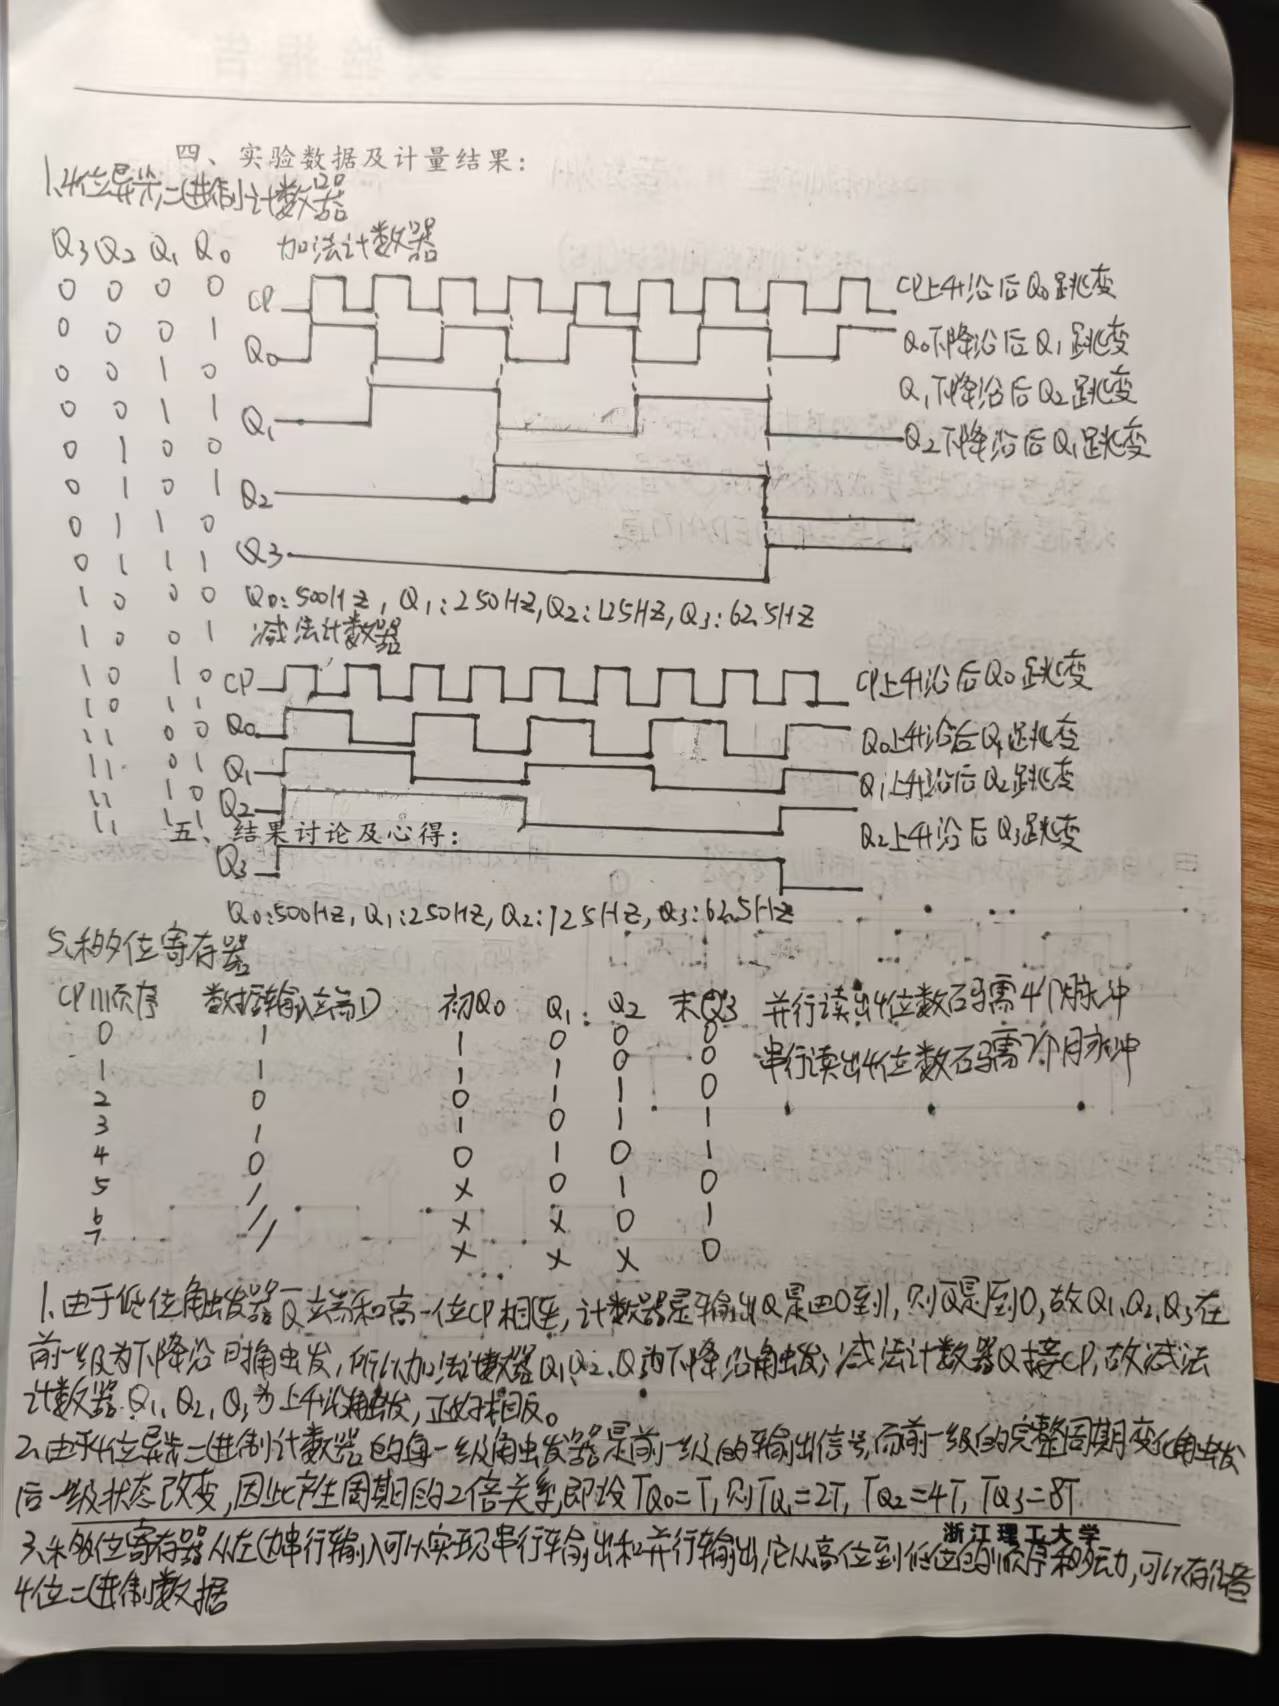 四、实验数据及计量结果：
1、4位异步二进制计数器
Q3 Q2 Q1 Q0 加法计数器
0 0 0 0
0 0 0 1
0 0 1 0
0 0 1 1
0 1 0 0
0 1 0 1
0 1 1 0
0 1 1 1
1 0 0 0
1 0 0 1
1 0 1 0
1 0 1 1
1 1 0 0
1 1 0 1
1 1 1 0
1 1 1 1
CP CP上升沿后Q0跳变
Q0 Q0下降沿后Q1跳变
Q1 Q1下降沿后Q2跳变
Q2下降沿后Q1跳变
Q2
Q3
Q0:500HZ, Q1:250HZ, Q2:125HZ, Q3:62.5HZ
减法计数器
CP CP上升沿后Q0跳变
Q0 Q0上升沿后Q1跳变
Q1 Q1上升沿后Q2跳变
Q2 Q2上升沿后Q3跳变
五、结果讨论及心得：
Q3
Q0:500HZ, Q1:250HZ, Q2:125HZ, Q3:62.5HZ
5、移位寄存器
CP顺序 数据输入端D 初Q0 Q1 Q2 末Q3 并行读出4位数码需4个脉冲
0 1 1 0 0 0 串行读出4位数码需7个脉冲
1 1 1 1 0 0
2 0 0 1 1 0
3 1 1 0 1 1
4 0 0 1 0 1
5 / x 0 1 0
6 / x x 0 1
7 / x x x 0
1、由于低位触发器Q̅端和高一位CP相连，计数器是输出Q是由0到1，则Q̅是1到0，故Q1、Q2、Q3在
前一级为下降沿时触发，所以加法计数器Q1、Q2、Q3为下降沿触发；减法计数器Q接CP，故减法
计数器Q1、Q2、Q3为上升沿触发，正好相反。
2、由于4位异步二进制计数器的每一级触发器是前一级的输出信号，而前一级的完整周期变化触发
后一级状态改变，因此产生周期的2倍关系，即设TQ0=T，则TQ1=2T，TQ2=4T，TQ3=8T
浙江理工大学
3、移位寄存器从左边串行输入可以实现串行输出和并行输出，它从高位到低位的顺序移动，可以存储
4位二进制数据